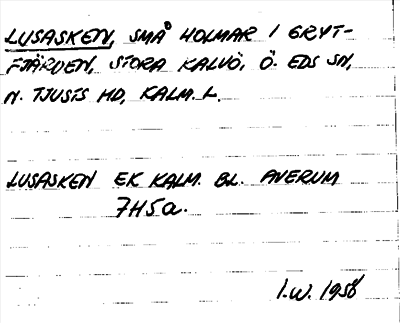 LUSASKEN, SMÅ HOLMAR I GRYT-
FJÄRDEN, STORA KALVÖ, Ö. EDS SN,
N. TJUSTS HD, KALM. L.
LUSASKEN EK KALM. BL. AVERUM
7H5a.
I.W. 1958